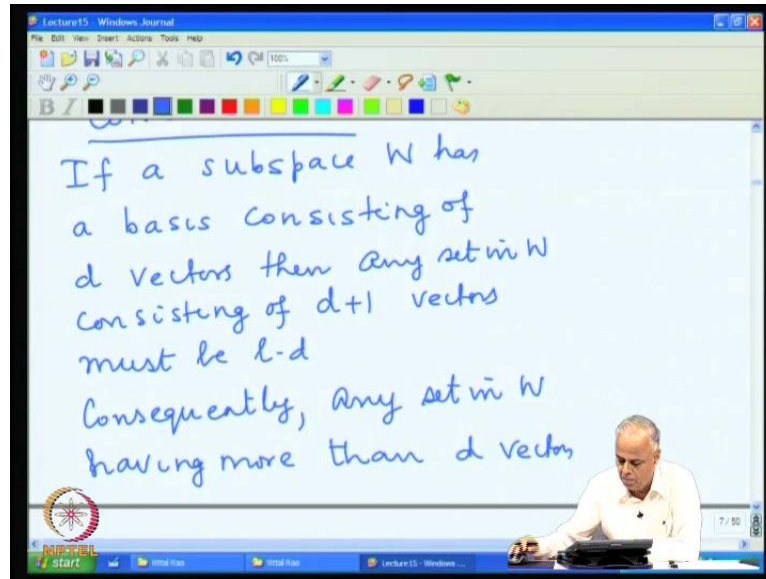 Lecture15 - Windows Journal
File Edit View Insert Actions Tools Help
100%
B I
If a subspace W has
a basis consisting of
d vectors then any set in W
consisting of d+1 vectors
must be l-d
Consequently, any set in W
having more than d vectors
7 / 50
NPTEL
start
Vittal Rao
Vittal Rao
Lecture15 - Windows ...